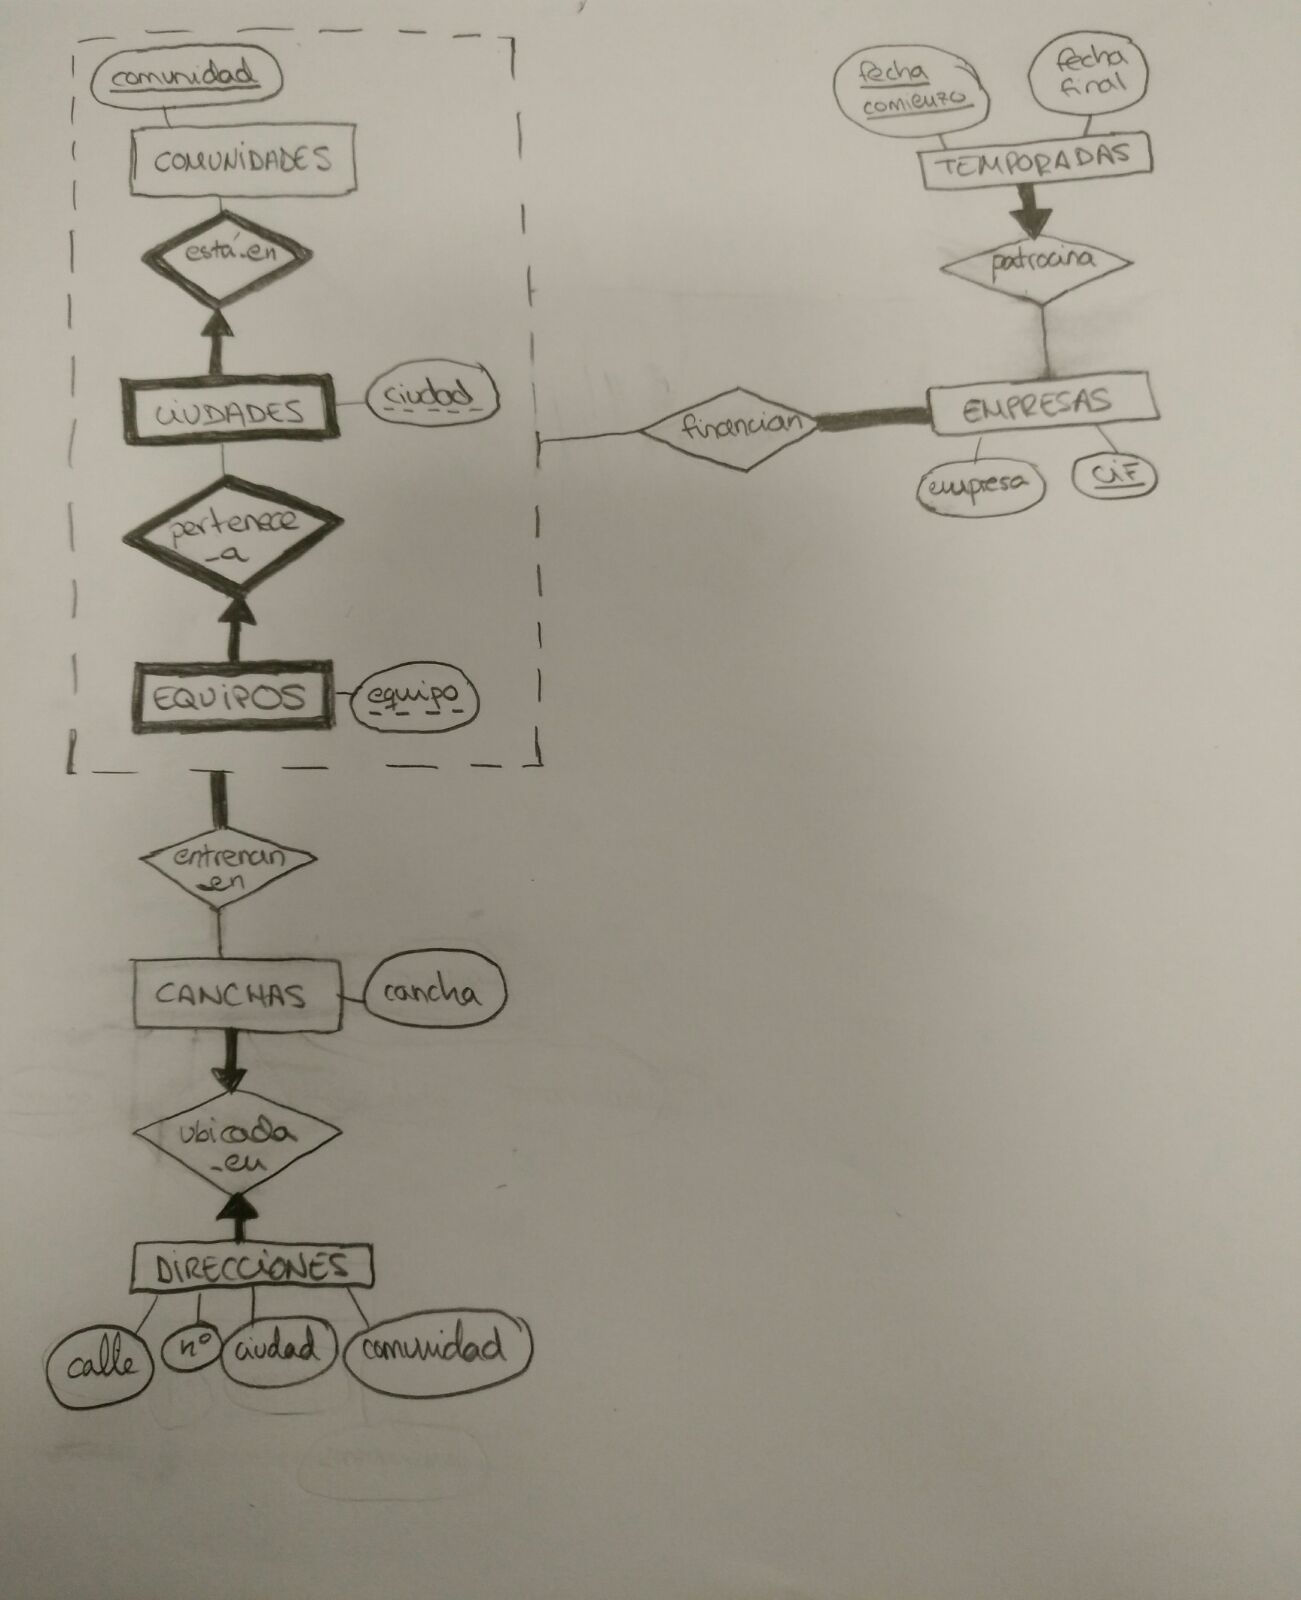 comunidad
COMUNIDADES
está_en
CIUDADES
ciudad
pertenece
_a
EQUIPOS
equipo
entrenan
_en
CANCHAS
cancha
ubicada
_en
DIRECCIONES
calle
nº
ciudad
comunidad
financian
fecha
comienzo
fecha
final
TEMPORADAS
patrocina
EMPRESAS
empresa
CIF